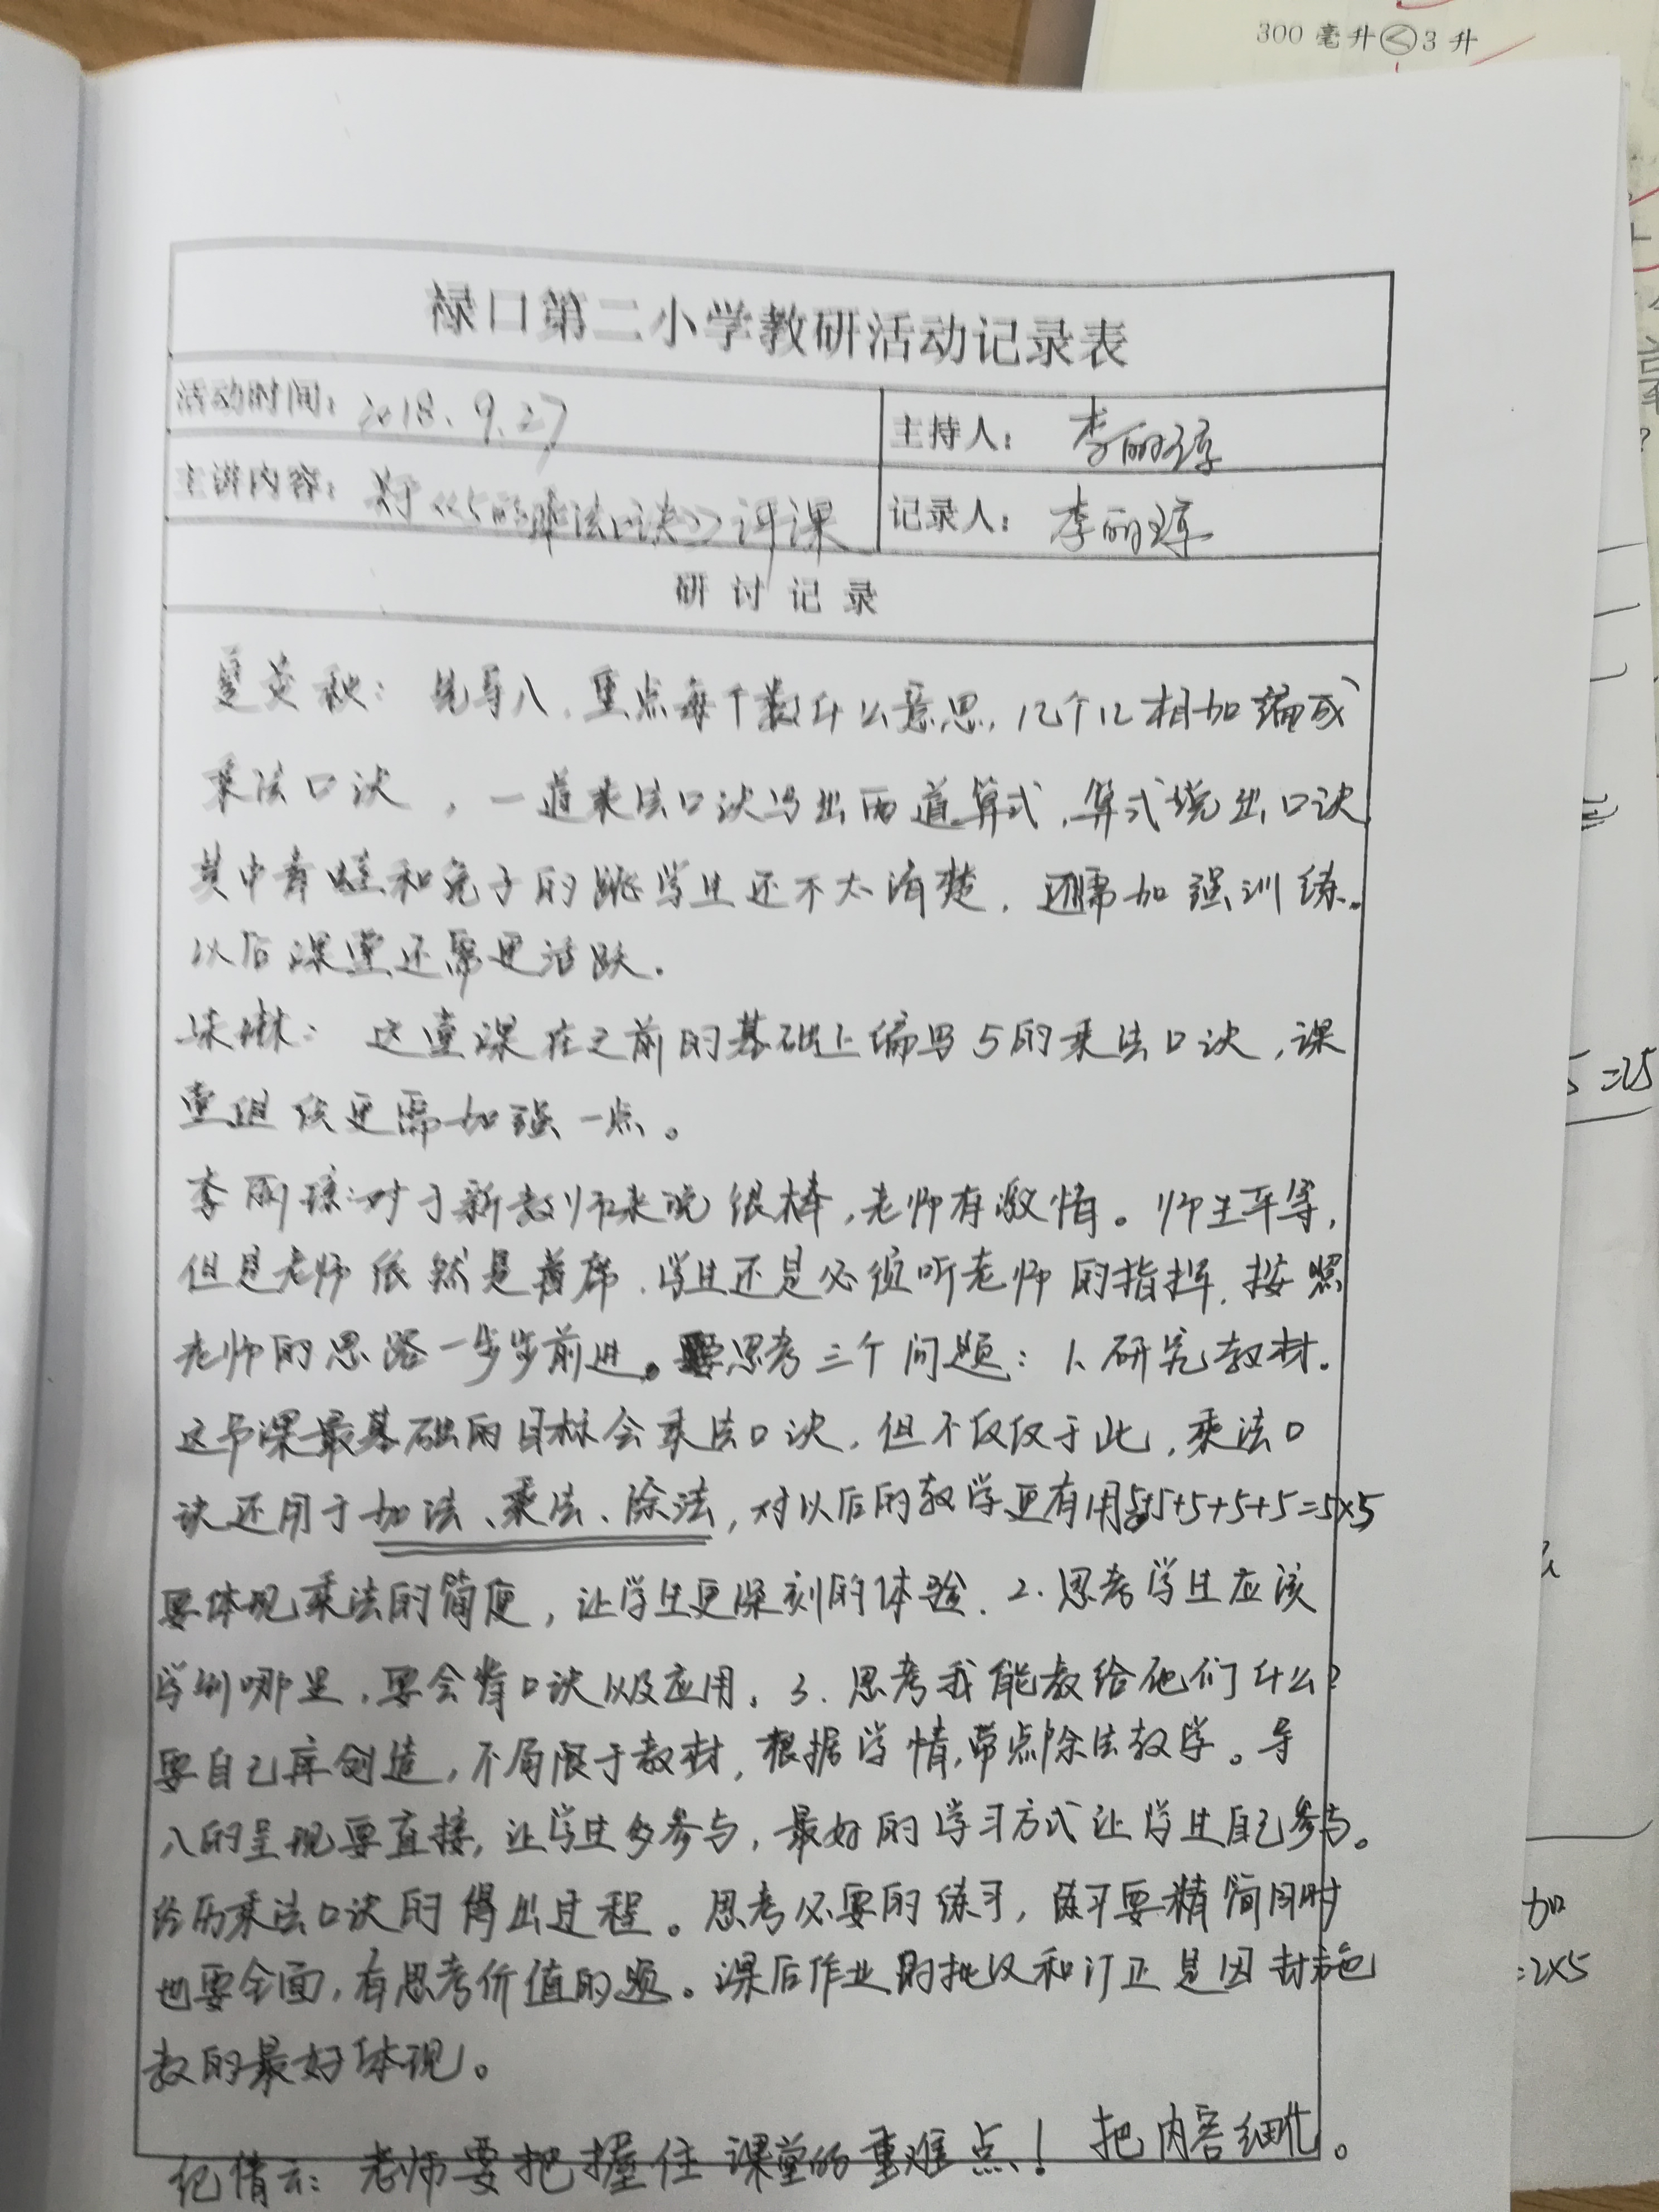 300 毫升<3 升
禄口第二小学教研活动记录表
活动时间：2018.9.27
主持人：李丽琼
主讲内容：关于《5的乘法口诀》评课
记录人：李丽琼
研讨记录
夏英秋：先导入，重点每个数什么意思，几个几相加编成
乘法口诀，一道乘法口诀写出两道算式，算式说出口诀
其中青蛙和兔子的跳学生还不太清楚，还需加强训练。
以后课堂还需更活跃。
朱琳：这堂课在之前的基础上编写5的乘法口诀，课
堂组织更需加强一点。
李丽琼：对于新教师来说很棒，老师有激情。师生平等，
但是老师依然是首席，学生还是必须听老师的指挥，按照
老师的思路一步步前进。要思考三个问题：1、研究教材。
这节课最基础的目标会乘法口诀，但不仅仅于此，乘法口
诀还用于加法、乘法、除法，对以后的教学更有用5+5+5+5+5=5×5
要体现乘法的简便，让学生更深刻的体验。2.思考学生应该
学到哪里，要会背口诀以及应用。3.思考我能教给他们什么？
要自己再创造，不局限于教材，根据学情，带点除法教学。导
入的呈现要直接，让学生多参与，最好的学习方式让学生自己参与。
经历乘法口诀的得出过程。思考必要的练习，练习要精简同时
也要全面，有思考价值的题。课后作业的批改和订正是因材施
教的最好体现。
纪倩云：老师要把握住课堂的重难点！把内容细化。
5=25
加
=2×5